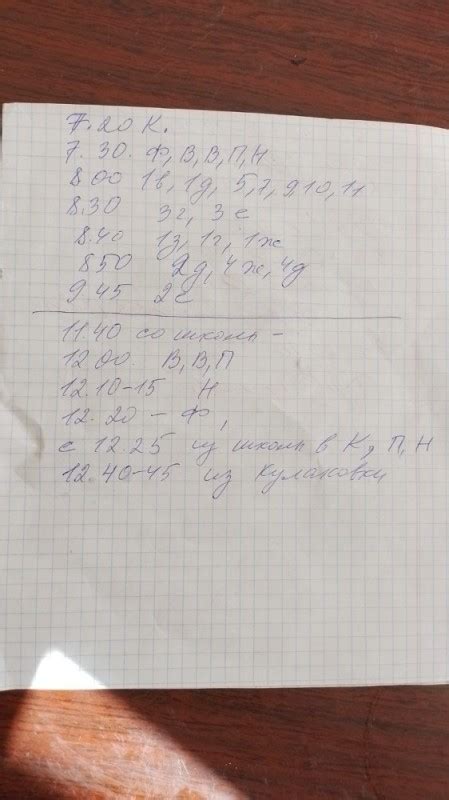 7.20 К.
7.30. Ф, В, В, П, Н
8.00 1в, 1д, 5, 7, 9, 10, 11
8.30 3г, 3е
8.40 1з, 1г, 1ж
8.50 2д, 4ж, 4д
9.45 2е
11.40 со школы –
12.00 В, В, П
12.10-15 Н
12.20 – Ф,
с 12.25 из школы в К, П, Н
12.40-45 из Кулаковки